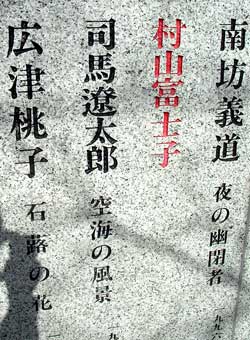 南坊義道
夜の幽閉者
村山富士子
司馬遼太郎
空海の風景
広津桃子
石蕗の花